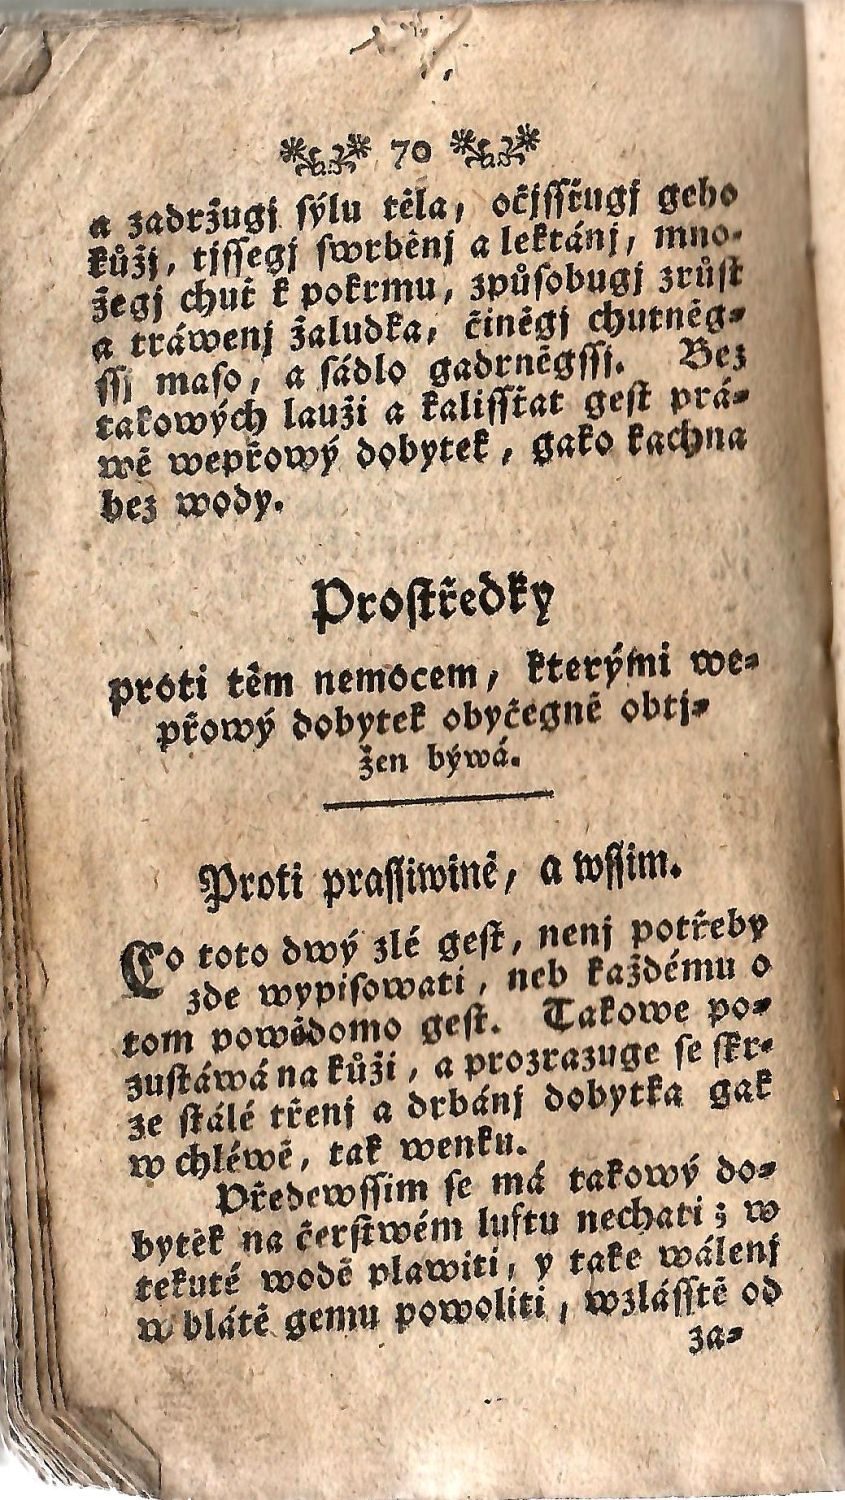 70
a zadržugj sýlu těla, očjsſťugj geho
kůžj, tjsſegj ſwrběnj a lektánj, mno-
žegj chuť k pokrmu, způſobugj zrůſt
a tráwenj žaludka, činěgj chutněg-
ſſj maſo, a ſádlo gadrněgſſj. Bez
takowých lauži a kaliſſťat geſt prá-
wě wepřowý dobytek, gako kachna
bez wody.
Proſtředky
proti těm nemocem, kterými we-
přowý dobytek obyčegně obtj-
žen býwá.
Proti praſſiwině, a wſſim.
Co toto dwý zlé geſt, nenj potřeby
zde wypiſowati, neb každému o
tom powědomo geſt. Takowe po-
zuſtáwá na kůži, a prozrazuge ſe ſkr-
ze ſtálé třenj a drbánj dobytka gak
w chléwě, tak wenku.
Předewſſim ſe má takowý do-
bytěk na čerſtwém luftu nechati; w
tekuté wodě plawiti, y take wálenj
w blátě gemu powoliti, wzláſſtě od
za-